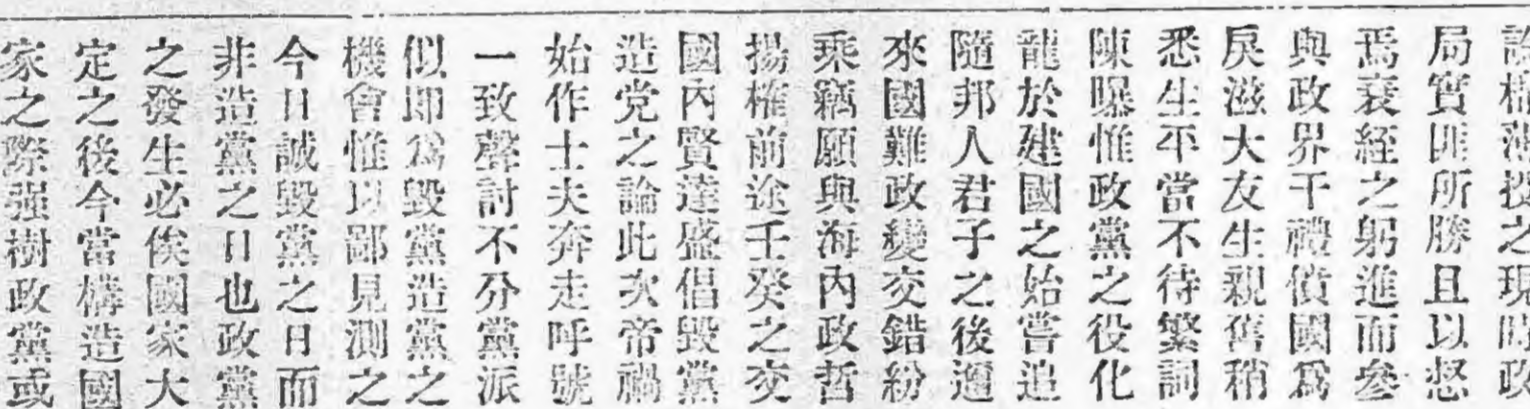 之現時政
局實匪所勝且以怒
焉衰絰之躬進而參
與政界干禮僨國爲
戾滋大友生親舊稍
悉生平當不待繁詞
陳曝惟政黨之役化
龍於建國之始嘗追
隨邦人君子之後邇
來國難政變交錯紛
乘竊願與海內政哲
揚榷前途壬癸之交
國內賢達盛倡毀黨
造党之論此次帝禍
始作士夫奔走呼號
一致聲討不分黨派
似即爲毀黨造黨之
機會惟以鄙見測之
今日誠毀黨之日而
非造黨之日也政黨
之發生必俟國家大
定之後今當構造國
家之際强樹政黨或